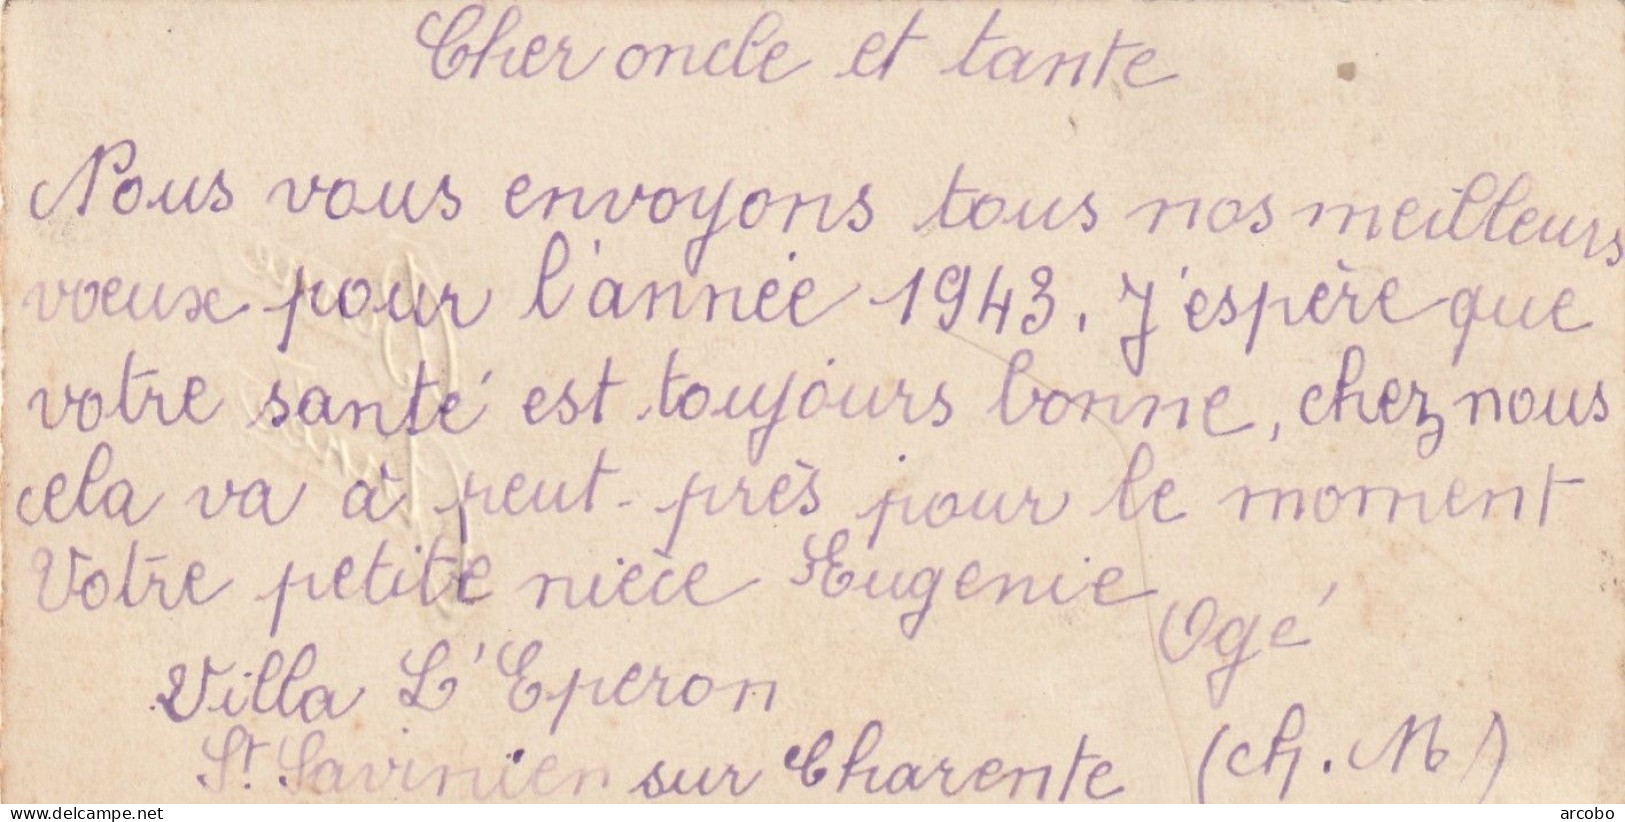 Cher oncle et tante
Nous vous envoyons tous nos meilleurs
voeux pour l'année 1943. J'espère que
votre santé est toujours bonne, chez nous
cela va à peut-près pour le moment
Votre petite nièce Eugenie
Ogé
Villa L'Eperon
St. Savinien sur Charente (Ch. M)
arcobo